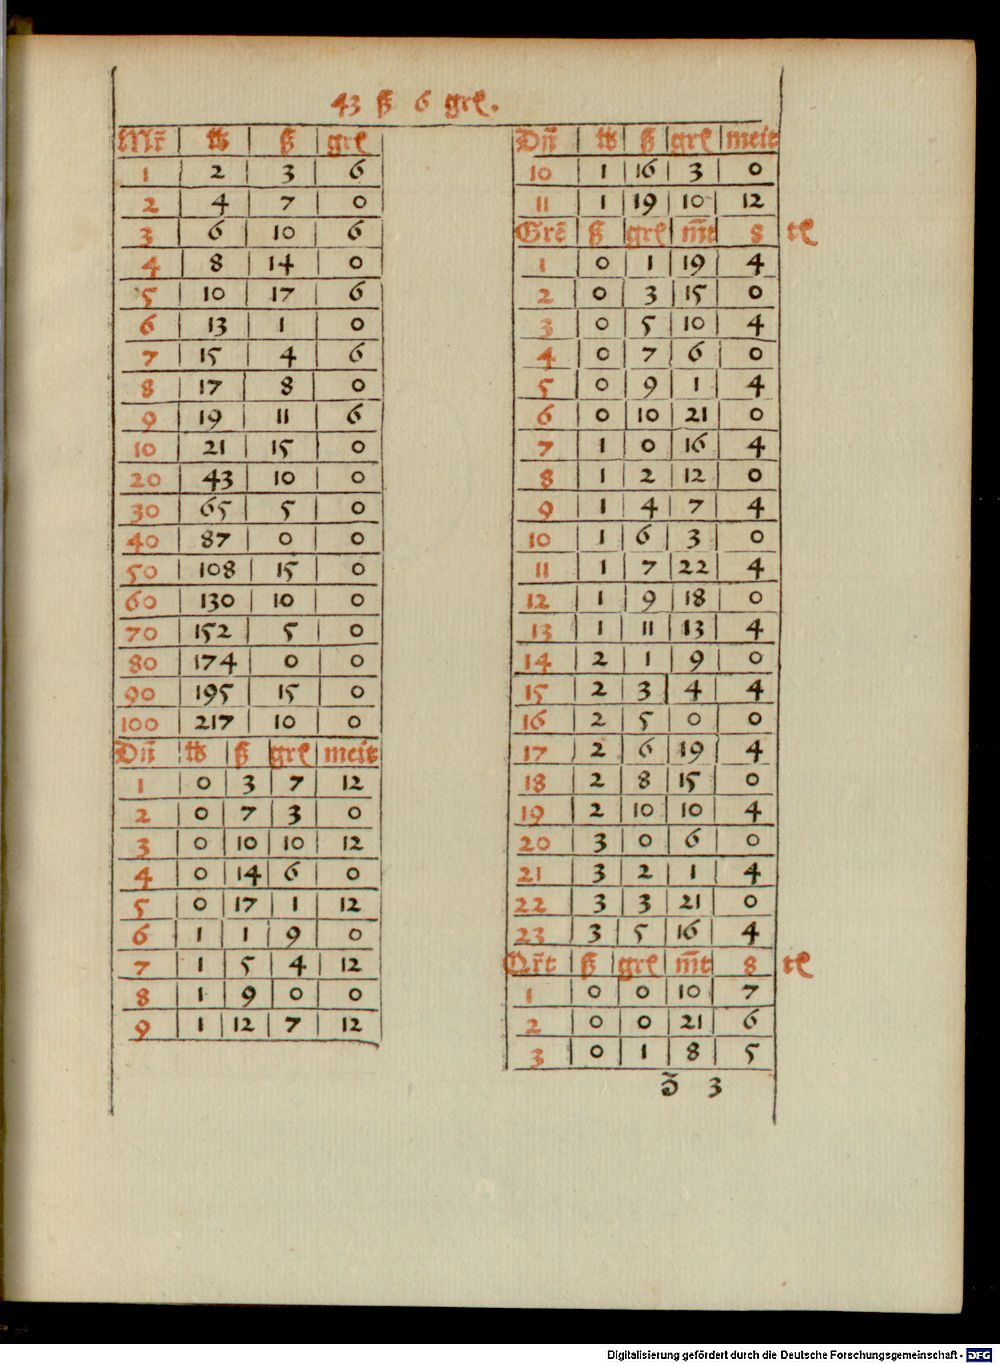 43 ß 6 grꝭ.
Mr̄ | ℔ | ß | grꝭ
1 | 2 | 3 | 6
2 | 4 | 7 | 0
3 | 6 | 10 | 6
4 | 8 | 14 | 0
5 | 10 | 17 | 6
6 | 13 | 1 | 0
7 | 15 | 4 | 6
8 | 17 | 8 | 0
9 | 19 | 11 | 6
10 | 21 | 15 | 0
20 | 43 | 10 | 0
30 | 65 | 5 | 0
40 | 87 | 0 | 0
50 | 108 | 15 | 0
60 | 130 | 10 | 0
70 | 152 | 5 | 0
80 | 174 | 0 | 0
90 | 195 | 15 | 0
100 | 217 | 10 | 0
Dn̄ | ℔ | ß | grꝭ | meit
1 | 0 | 3 | 7 | 12
2 | 0 | 7 | 3 | 0
3 | 0 | 10 | 10 | 12
4 | 0 | 14 | 6 | 0
5 | 0 | 17 | 1 | 12
6 | 1 | 1 | 9 | 0
7 | 1 | 5 | 4 | 12
8 | 1 | 9 | 0 | 0
9 | 1 | 12 | 7 | 12
Dn̄ | ℔ | ß | grꝭ | meit
10 | 1 | 16 | 3 | 0
11 | 1 | 19 | 10 | 12
Grē | ß | grꝭ | m̄t | 8 tꝭ
1 | 0 | 1 | 19 | 4
2 | 0 | 3 | 15 | 0
3 | 0 | 5 | 10 | 4
4 | 0 | 7 | 6 | 0
5 | 0 | 9 | 1 | 4
6 | 0 | 10 | 21 | 0
7 | 1 | 0 | 16 | 4
8 | 1 | 2 | 12 | 0
9 | 1 | 4 | 7 | 4
10 | 1 | 6 | 3 | 0
11 | 1 | 7 | 22 | 4
12 | 1 | 9 | 18 | 0
13 | 1 | 11 | 13 | 4
14 | 2 | 1 | 9 | 0
15 | 2 | 3 | 4 | 4
16 | 2 | 5 | 0 | 0
17 | 2 | 6 | 19 | 4
18 | 2 | 8 | 15 | 0
19 | 2 | 10 | 10 | 4
20 | 3 | 0 | 6 | 0
21 | 3 | 2 | 1 | 4
22 | 3 | 3 | 21 | 0
23 | 3 | 5 | 16 | 4
Qr̄t | ß | grꝭ | m̄t | 8 tꝭ
1 | 0 | 0 | 10 | 7
2 | 0 | 0 | 21 | 6
3 | 0 | 1 | 8 | 5
3
Digitalisierung gefördert durch die Deutsche Forschungsgemeinschaft - DFG